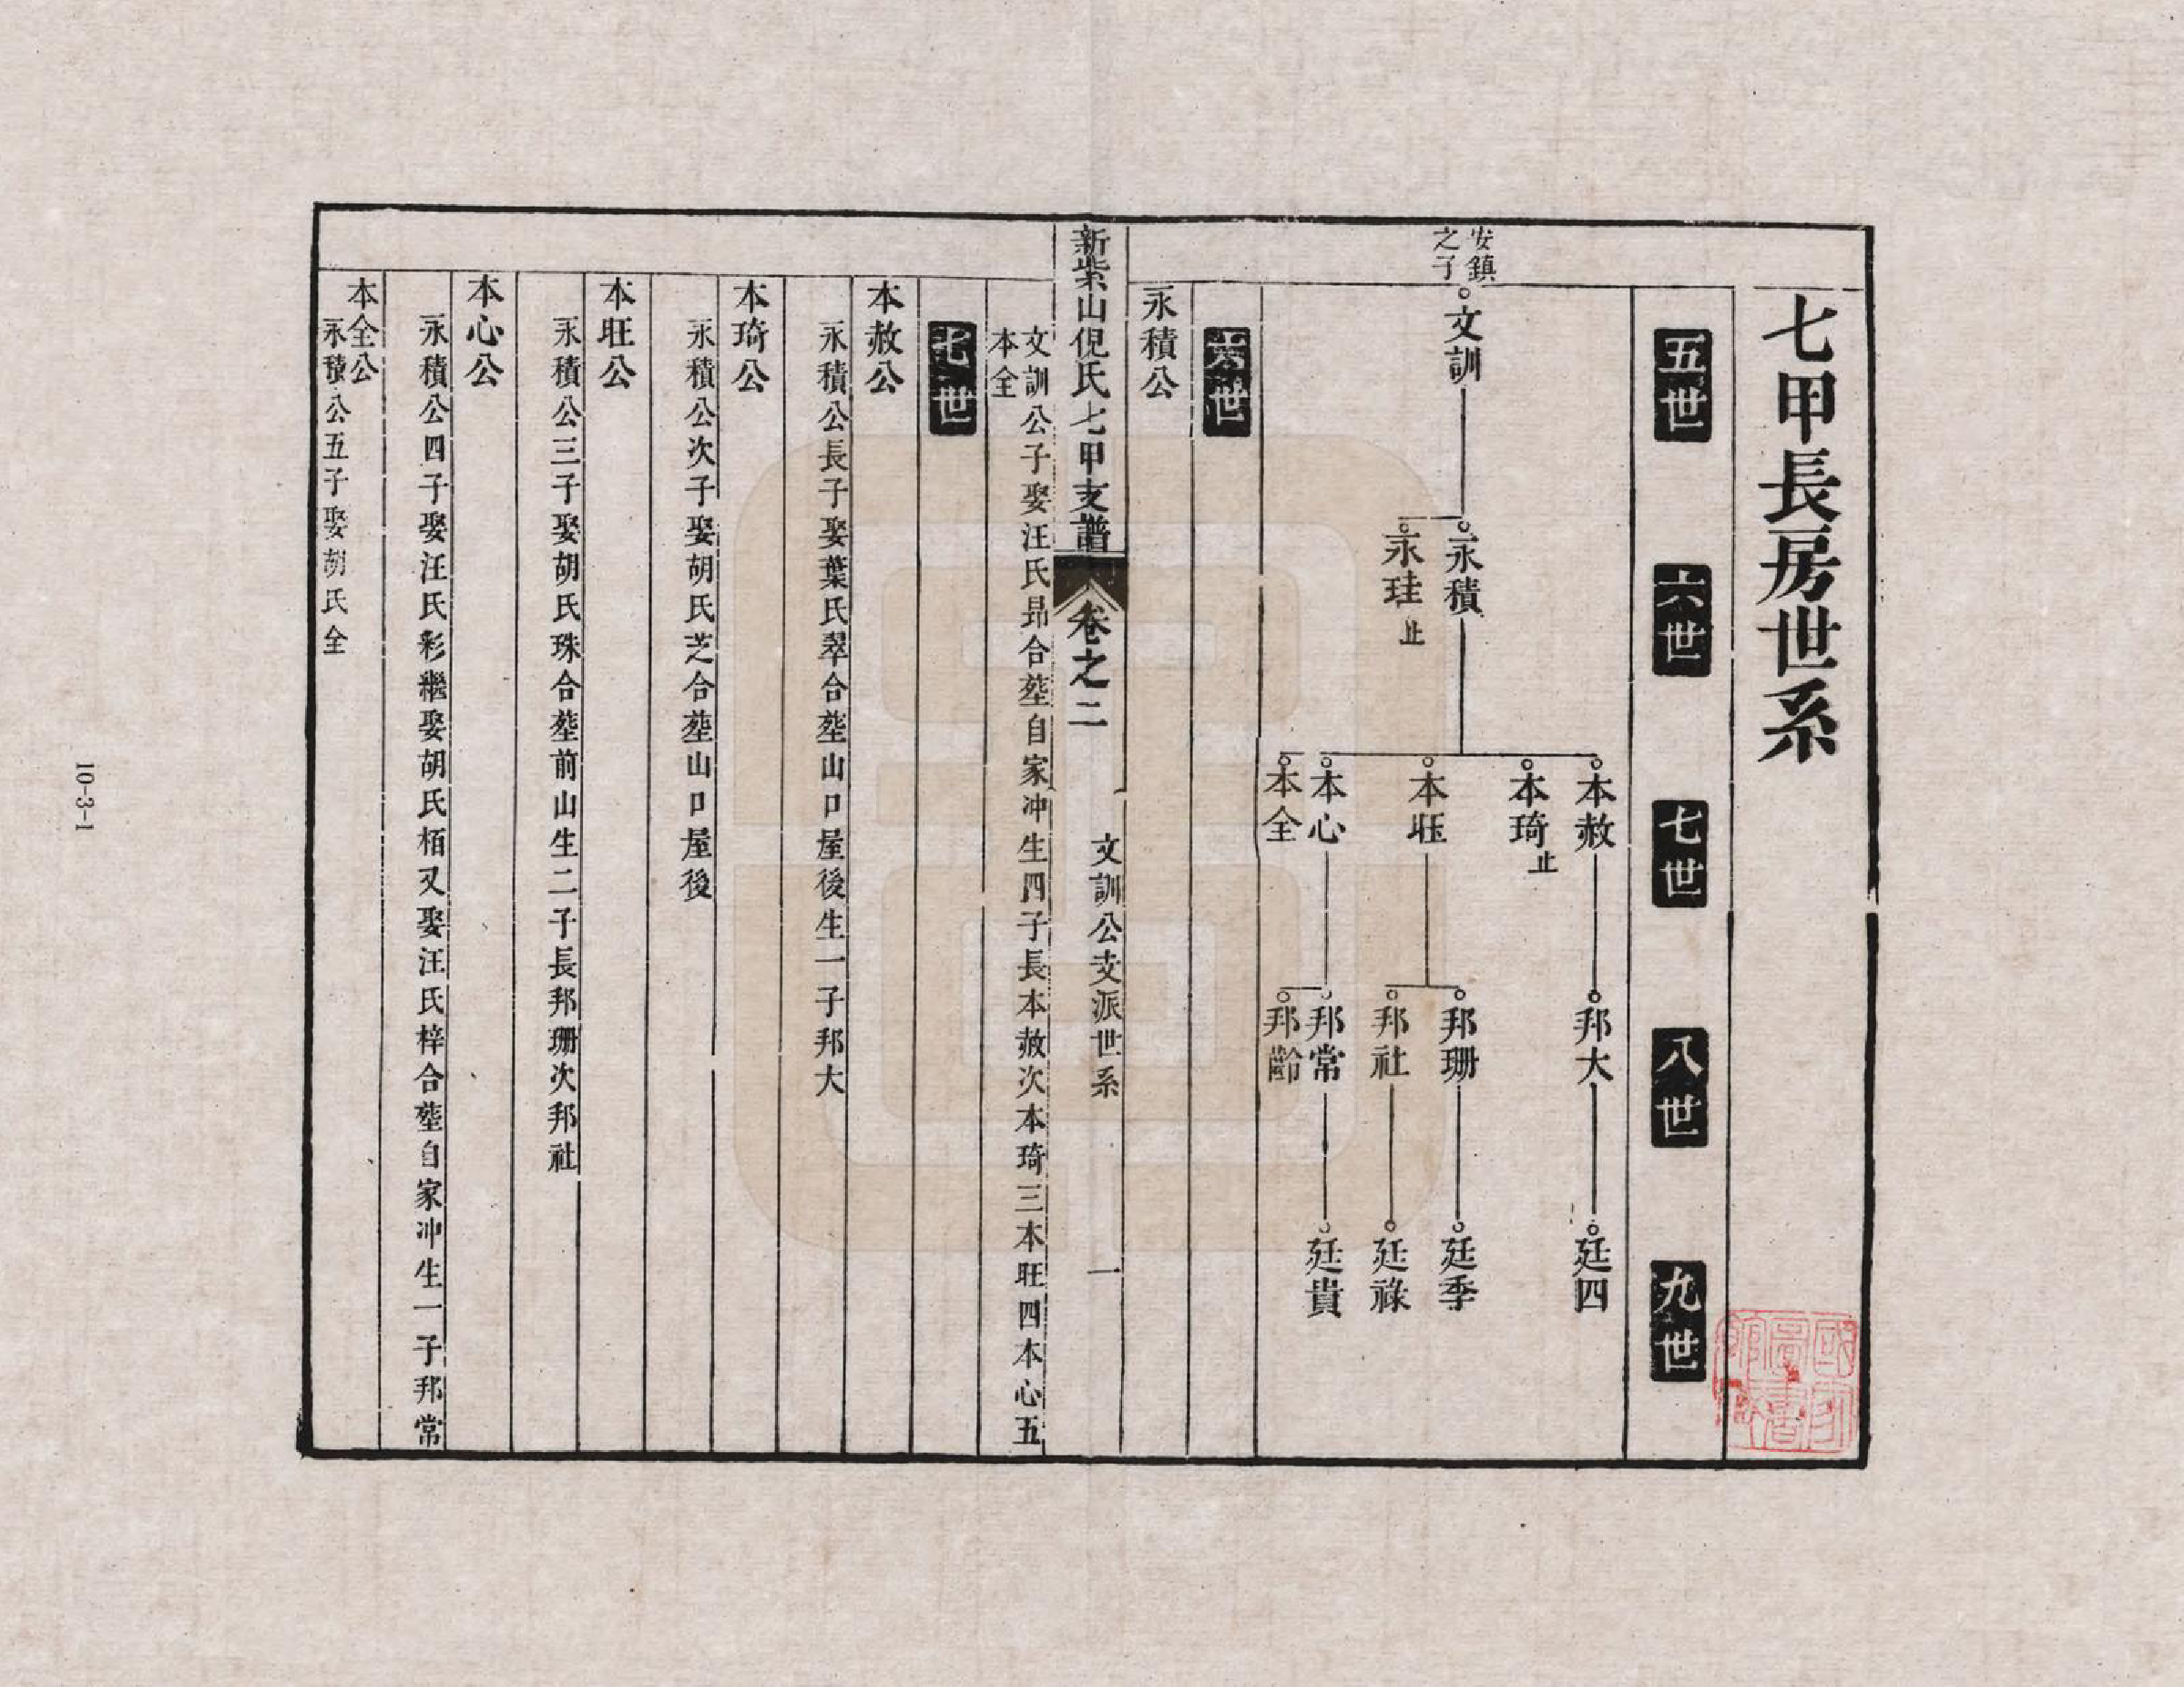 七甲長房世系
五世 六世 七世 八世 九世
安鎮之子
文訓
永積
永珪 止
本赦
本琦 止
本旺
本心
本全
邦大
邦珊
邦社
邦常
邦齡
廷四
廷季
廷祿
廷貴
六世
永積公
新紫山倪氏七甲支譜 卷之二 文訓公支派世系 一
文訓公子娶汪氏昻合塟自家冲生四子長本赦次本琦三本旺四本心五
本全
七世
本赦公
永積公長子娶葉氏翠合塟山口屋後生一子邦大
本琦公
永積公次子娶胡氏芝合塟山口屋後
本旺公
永積公三子娶胡氏珠合塟前山生二子長邦珊次邦社
本心公
永積公四子娶汪氏彩繼娶胡氏栢又娶汪氏梓合塟自家冲生一子邦常
本全公
永積公五子娶胡氏全
10-3-1
國家圖書館